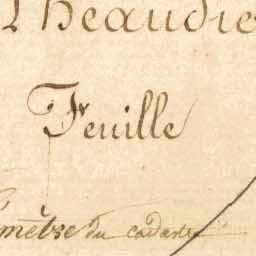 Theaudie
Feuille
mètre du cadastre